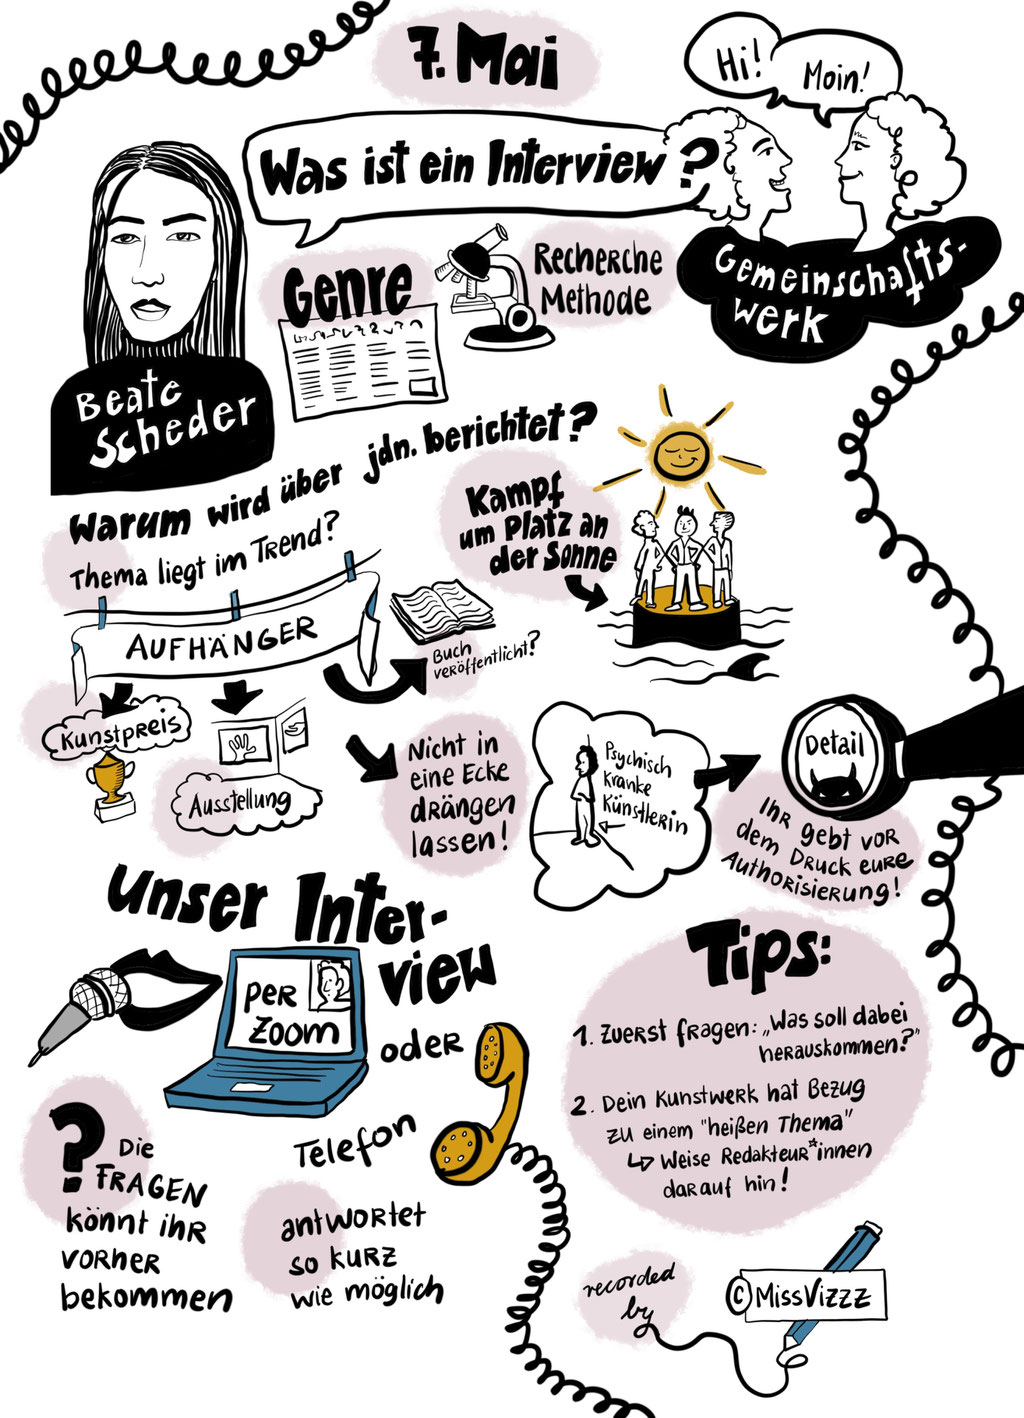 7. Mai
Hi!
Moin!
Was ist ein Interview?
Gemeinschafts-
werk
Genre
Recherche
Methode
Beate
Scheder
Warum wird über jdn. berichtet?
Thema liegt im Trend?
Kampf
um Platz an
der Sonne
AUFHÄNGER
Buch
veröffentlicht?
Kunstpreis
Ausstellung
Nicht in
eine Ecke
drängen
lassen!
Psychisch
kranke
Künstlerin
Detail
Ihr gebt vor
dem Druck eure
Authorisierung!
Unser Inter-
view
per
Zoom
oder
Telefon
? Die
FRAGEN
könnt ihr
vorher
bekommen
antwortet
so kurz
wie möglich
Tips:
1. Zuerst fragen: „Was soll dabei
herauskommen?"
2. Dein Kunstwerk hat Bezug
zu einem "heißen Thema"
↳ Weise Redakteur*innen
darauf hin!
recorded
by
© MissVizzz